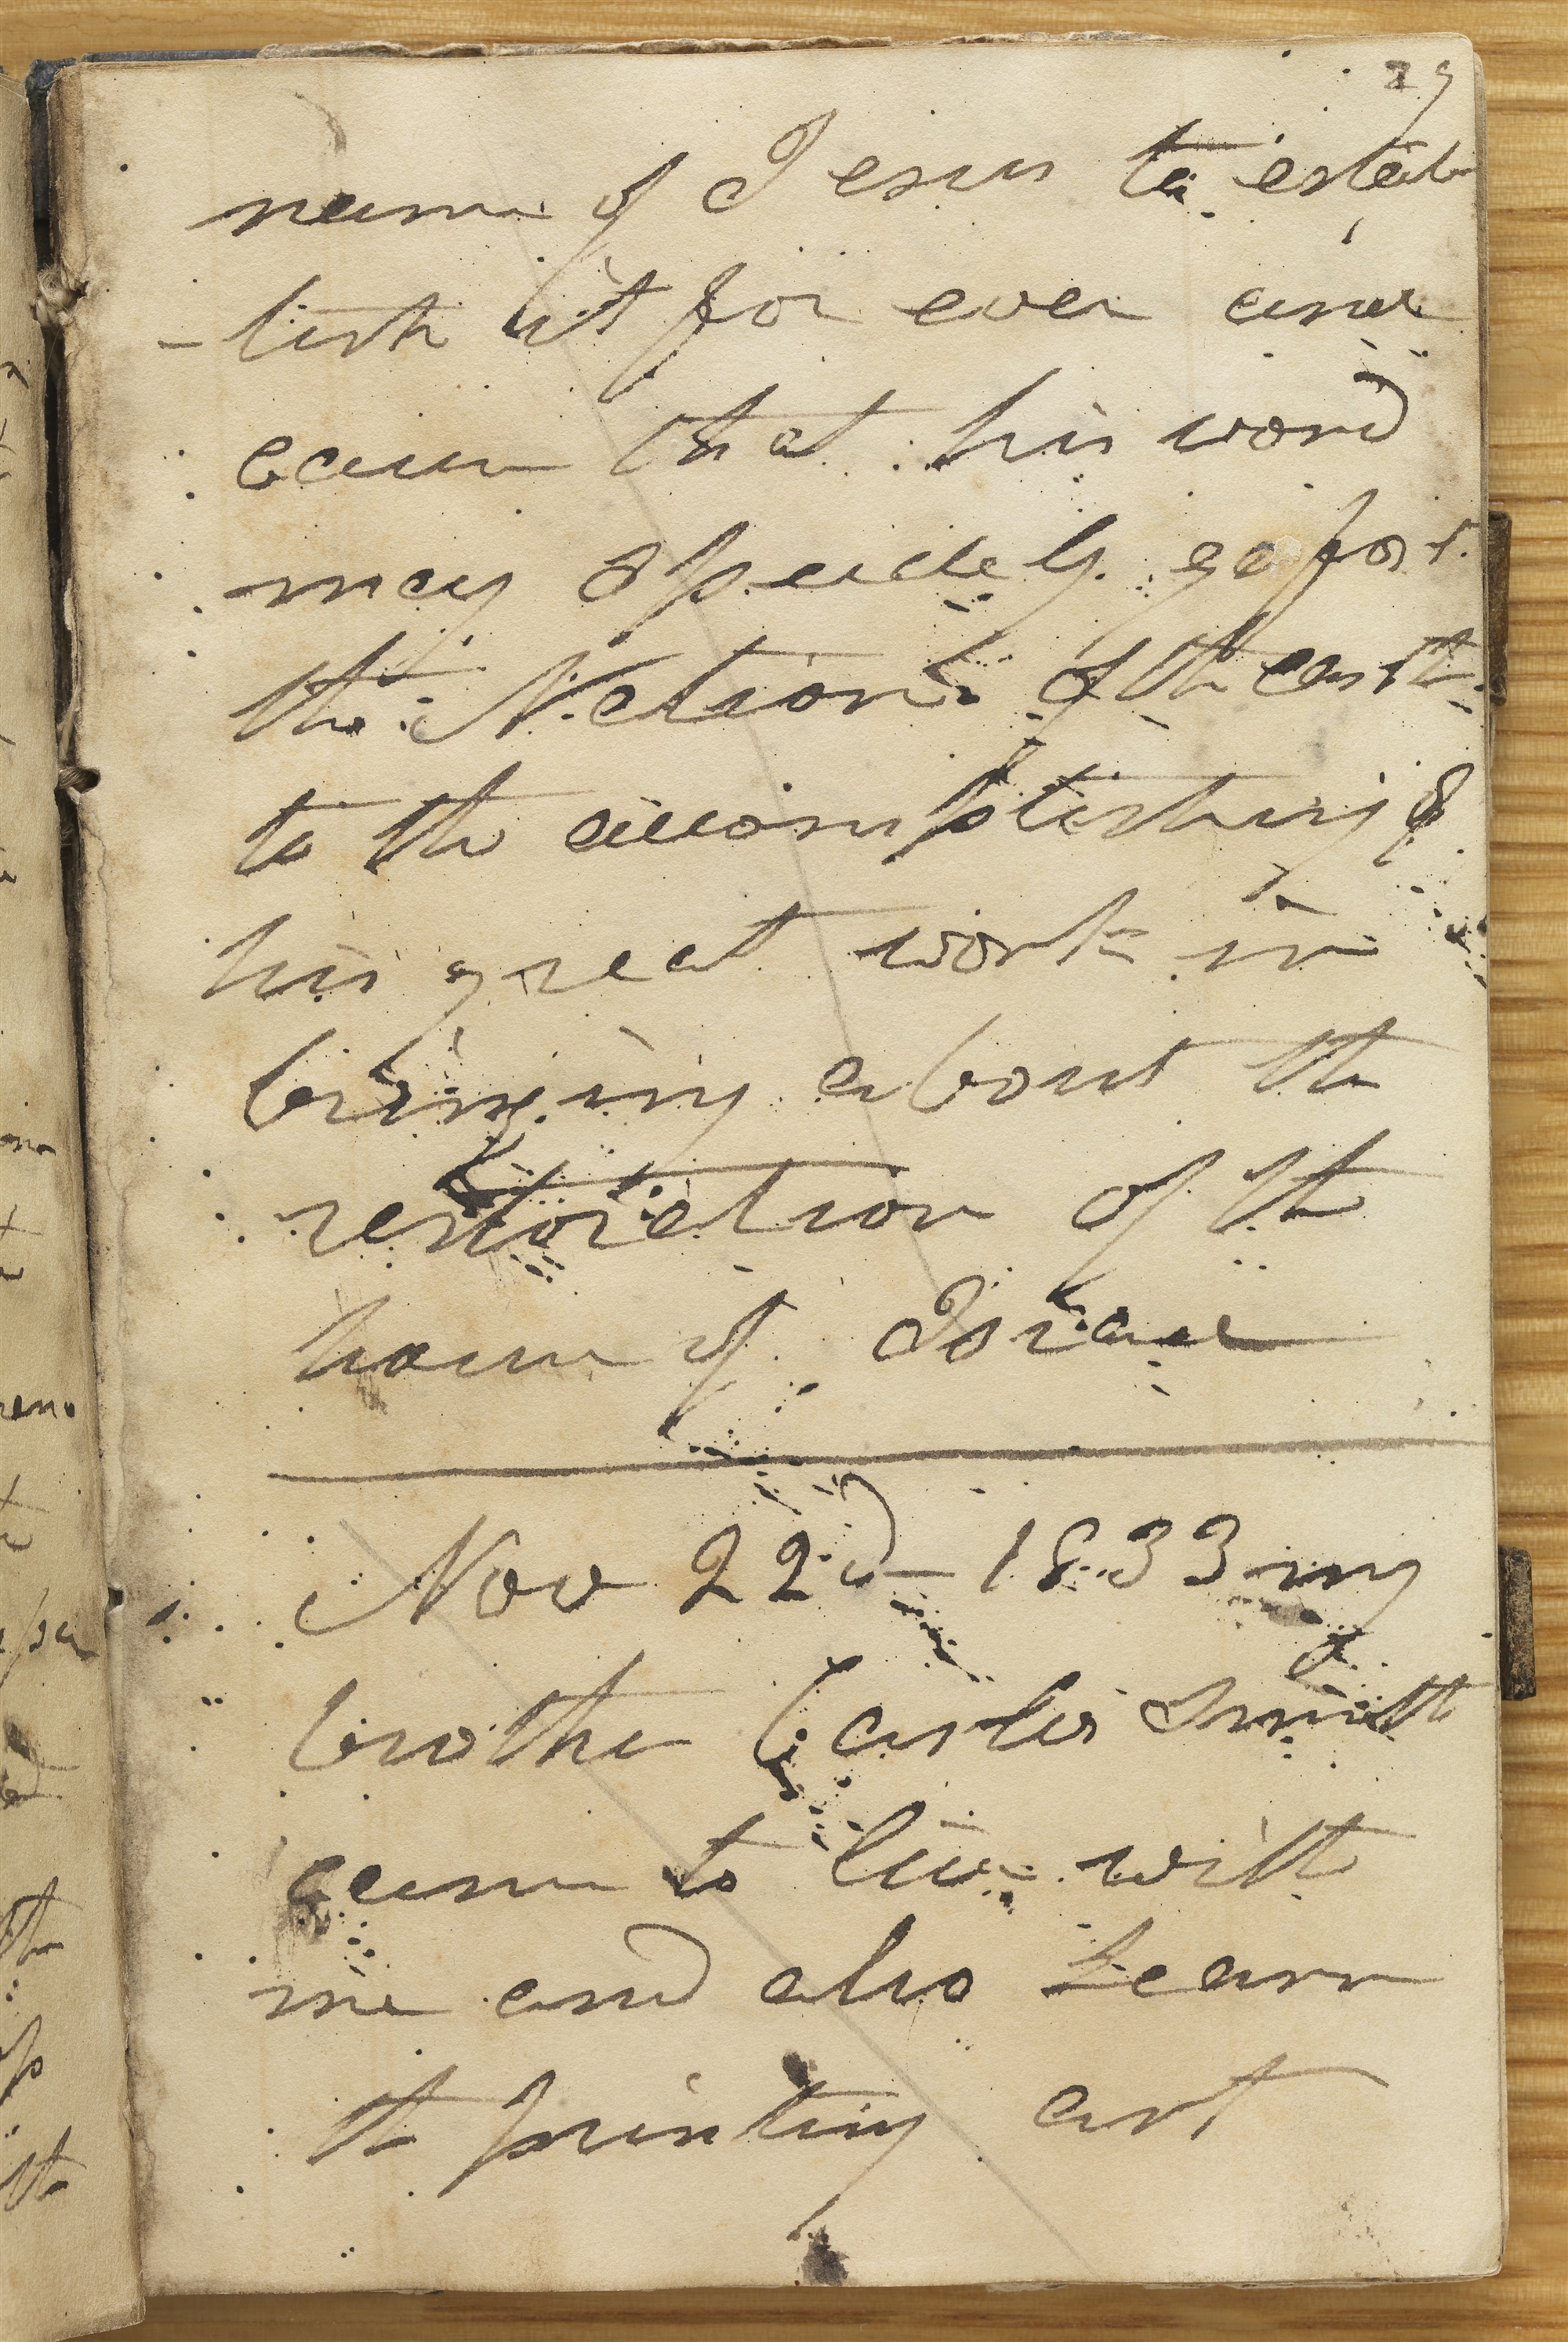 29
name of Jesus to estab
-lish it for ever and
caus that his word
may speedely go for
the Nations of the earth
to the accomplishing of
his great work in
bringing about the
restoration of the
house of Israel
Nov 22d 1833 my
brother Carlos Smith
came to live with
me and also learn
the printing art